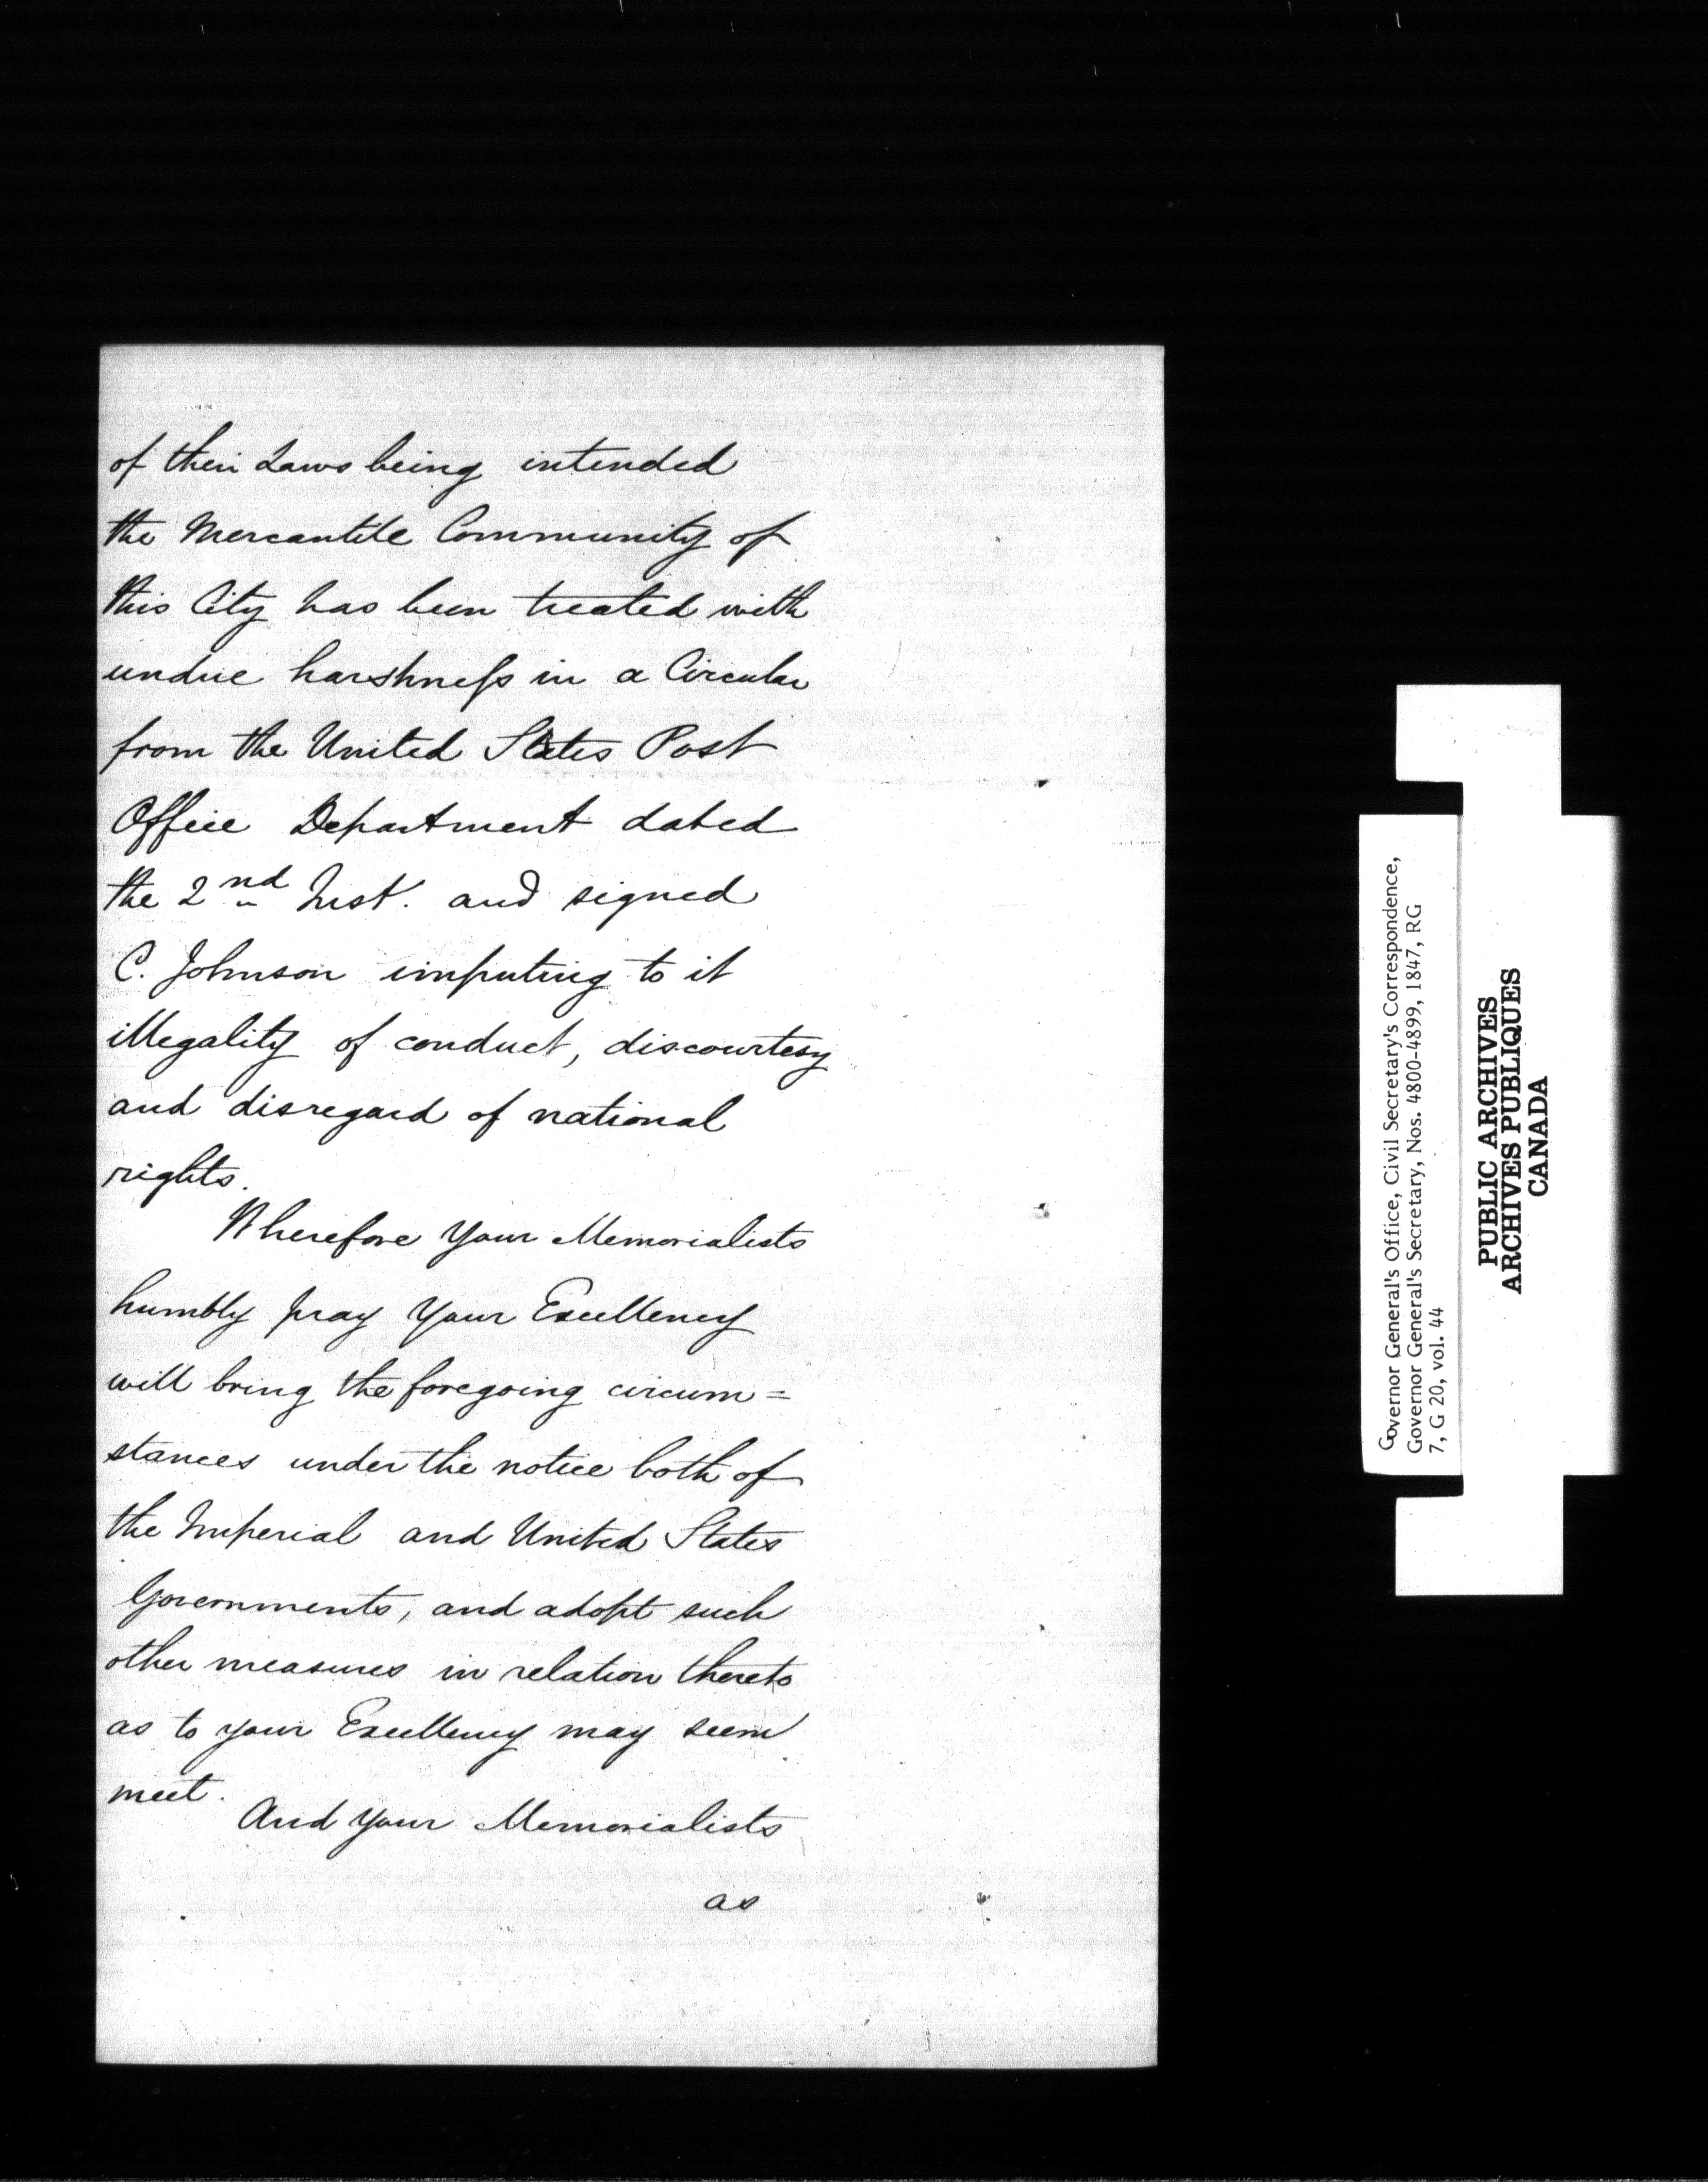 of their Laws being intended
the Mercantile Community of
this City has been treated with
undue harshness in a Circular
from the United States Post
Office Department dated
the 2nd Inst. and signed
C. Johnson imputing to it
illegality of conduct, discourtesy
and disregard of national
rights.
Wherefore Your Memorialists
humbly pray Your Excellency
will bring the foregoing circum=
stances under the notice both of
the Imperial and United States
Governments, and adopt such
other measures in relation thereto
as to your Excellency may seem
meet.
And your Memorialists
as
Governor General's Office, Civil Secretary's Correspondence,
Governor General's Secretary, Nos. 4800-4899, 1847, RG
7, G 20, vol. 44
PUBLIC ARCHIVES
ARCHIVES PUBLIQUES
CANADA